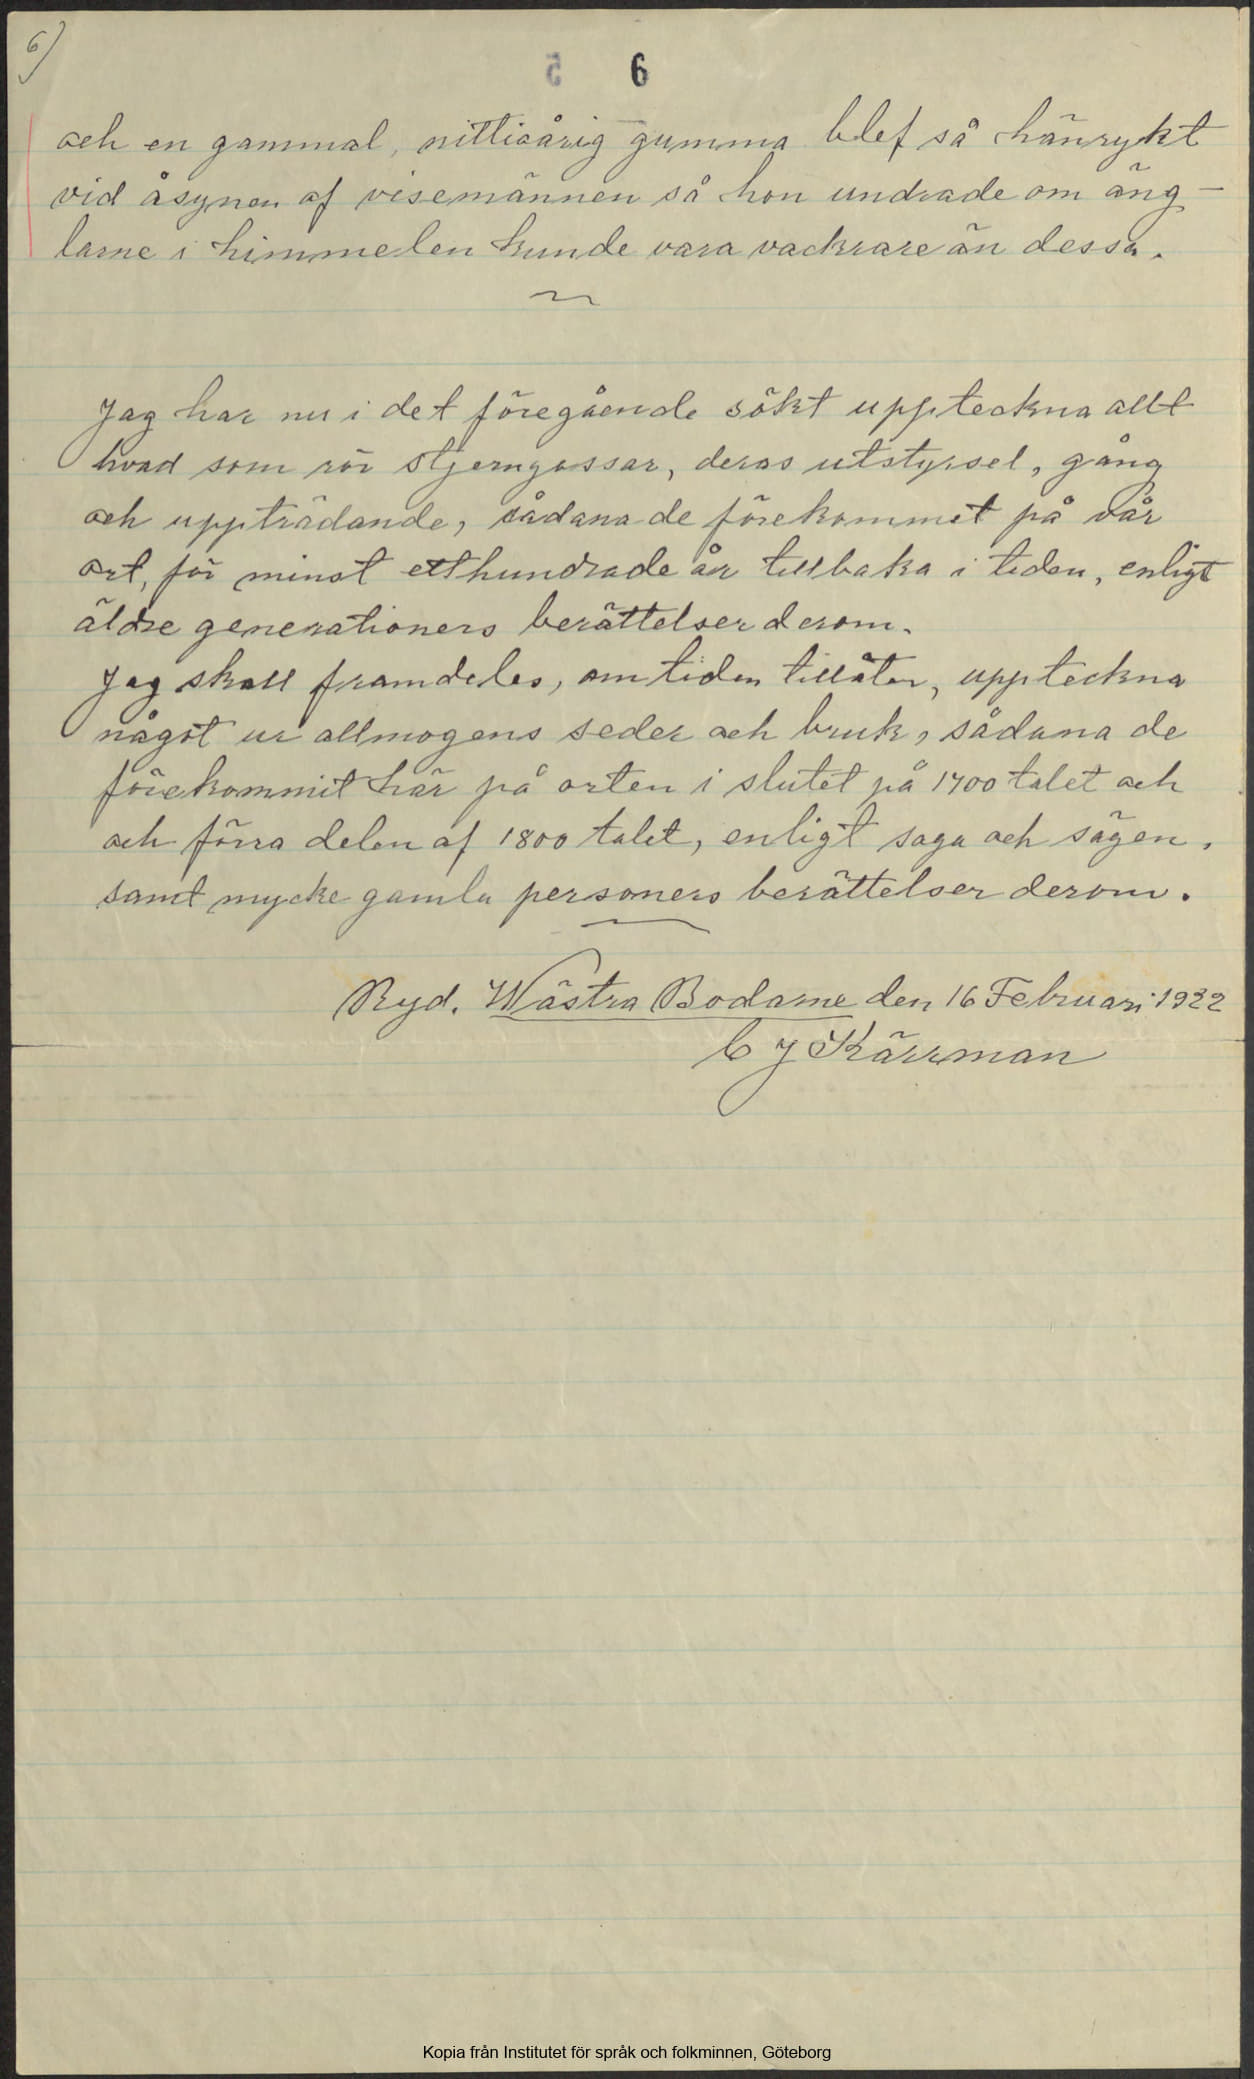 6)
5 6
och en gammal, nittioårig gumma blef så hänrykt
vid åsynen af visemännen så hon undrade om äng-
larne i himmelen kunde vara vackrare än dessa.
Jag har nu i det föregående sökt uppteckna allt
hvad som rör stjerngossar, deras utstyrsel, gång
och uppträdande, sådana de förekommet på vår
ort, för minst etthundrade år tillbaka i tiden, enligt
äldre generationers berättelser derom.
Jag skall framdeles, om tiden tillåter, uppteckna
något ur allmogens seder och bruk, sådana de
förekommit här på orten i slutet på 1700 talet och
och förra delen af 1800 talet, enligt saga och sägen,
samt mycke gamla personers berättelser derom.
Ryd. Wästra Bodarne den 16 Februari 1922
C J Kärrman
Kopia från Institutet för språk och folkminnen, Göteborg